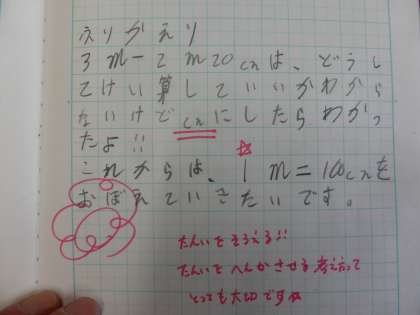 ふりかえり
3m-2m20cmは、どうし
てけい算していいかわから
ないけどcmにしたらわかっ
たよ!!
これからは、1m=100cmを
おぼえていきたいです。
たんいをそろえる!!
たんいをへんかさせる考えって
とっても大切です☆